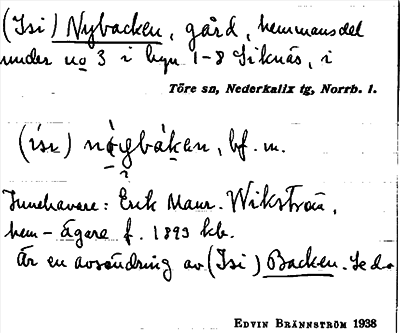 (Isi) Nybacken, gård, hemmansdel
under no 3 i byn 1-8 Siknäs, i
Töre sn, Nederkalix tg, Norrb. l.
bf. m.
Innehavare: Erik Maur. Wikström,
hem-ägare f. 1893 kb.
Är en avsöndring av (Isi) Backen. Se d.o
EDVIN BRÄNNSTRÖM 1938